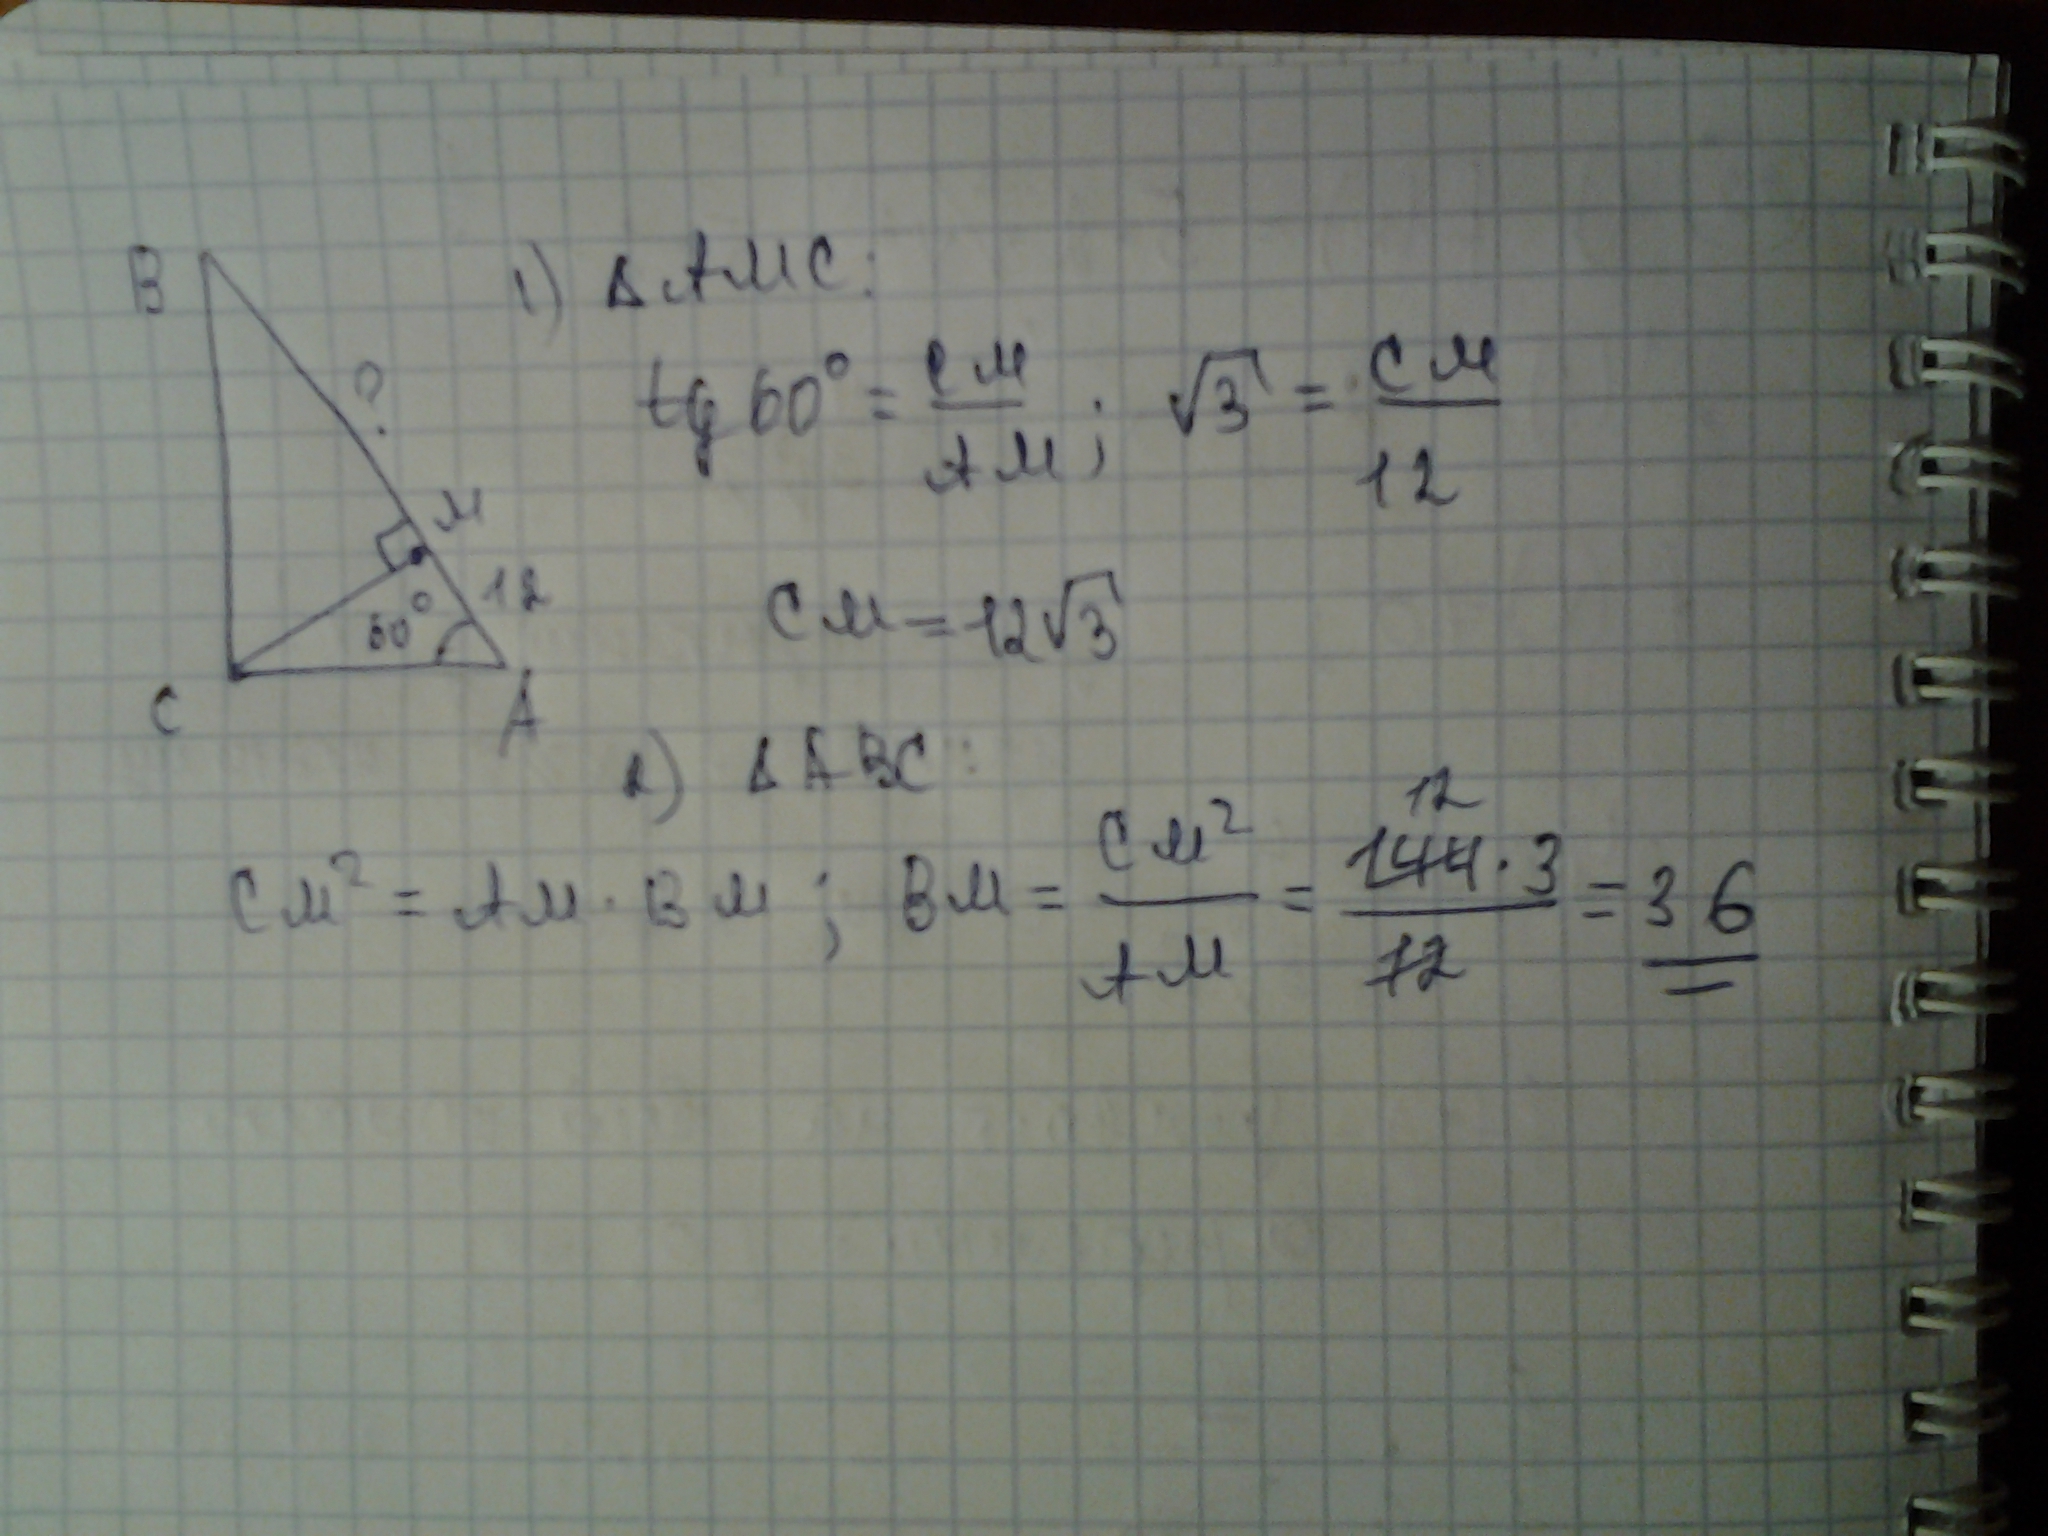 B
?
M
12
60°
C
A
1) Δ AMC:
tg 60° = CM / AM ; √3 = CM / 12
CM = 12√3
2) Δ ABC:
CM² = AM · BM ; BM = CM² / AM = 12 144 · 3 / 12 = 36